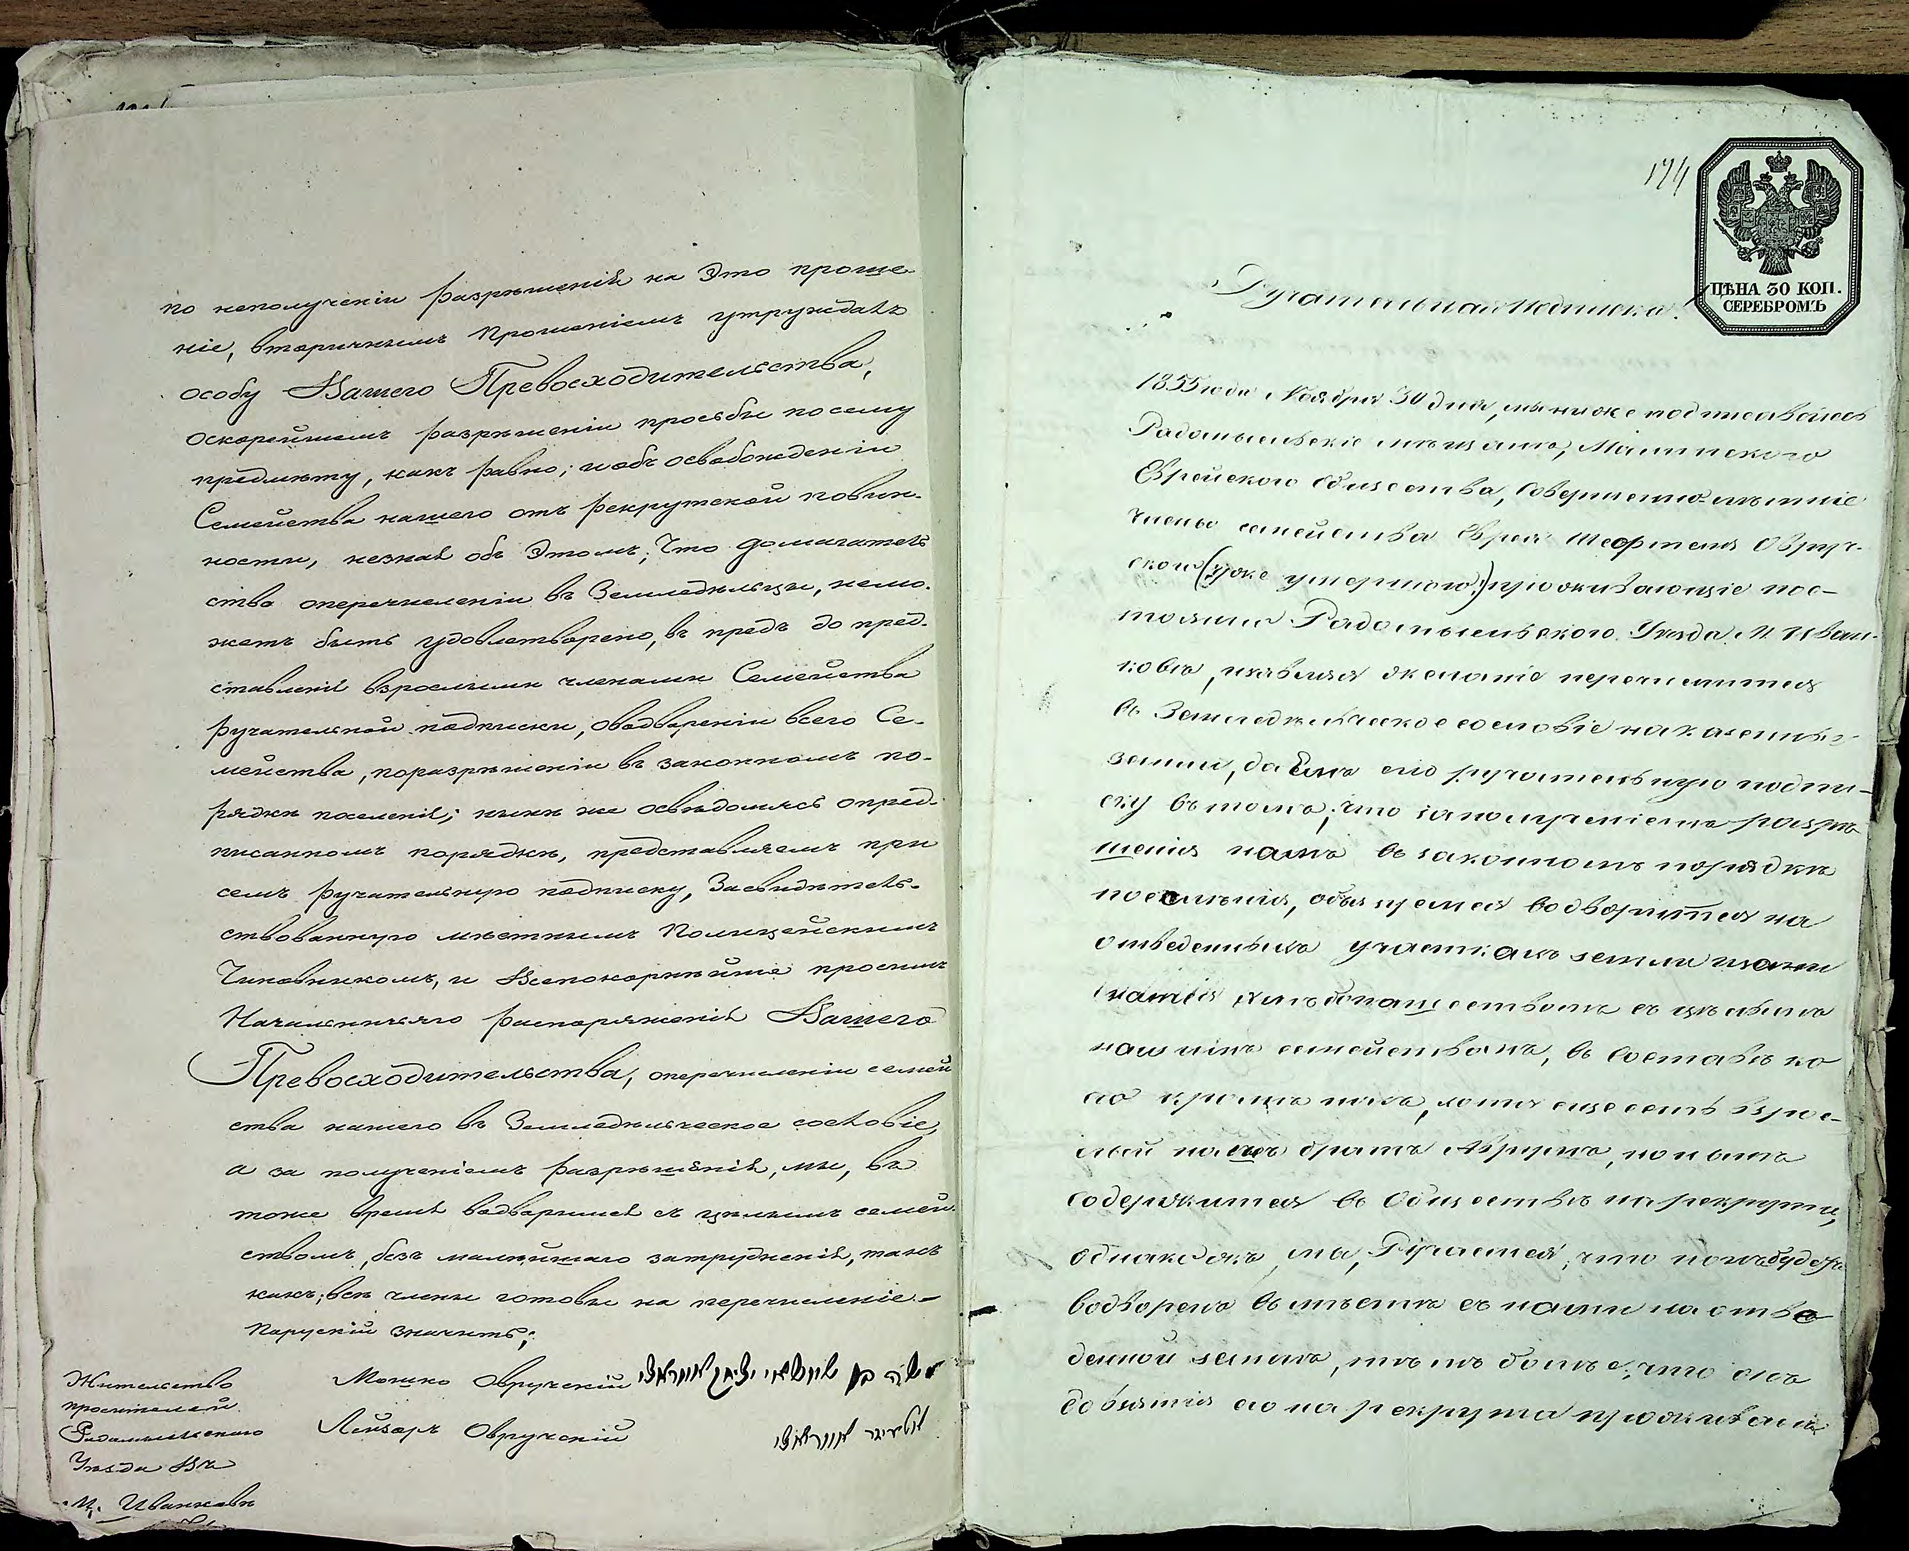 по неполученіи разрѣшенія на это проше-
ніе, вторичнымъ прошеніемъ утруждать
особу Вашего Превосходительства,
оскорейшемъ разрѣшеніи просьбы по сему
предмѣту, какъ равно; и объ освобожденіи
Семейства нашего отъ рекрутской повин-
ности, незная объ этомъ; что домагатель
ство оперечисленіи въ Земледѣльцы, немо-
жетъ быть удовлетворено, въ предъ до пред-
ставленія взрослыми членами Семейства
ручательной подписки, оводвореніи всего Се-
мейства, поразрѣшеніи въ законномъ по-
рядкѣ поселенія; нынѣ же освѣдомясь опред-
писанномъ порядкѣ, представляемъ при
семъ ручательную подписку, Засвидѣтель-
ствованную мѣстнымъ Полицейскимъ
Чиновникомъ, и Всепокорнѣйше просимъ
Начальничьяго распоряженія Вашего
Превосходительства, оперечисленіи семей
ства нашего въ Земледѣльческое сословіе,
а за полученіемъ разрѣшенія, мы, въ
тоже время водворимся съ цѣлымъ семей-
ствомъ, безъ малѣйшаго затрудненія, такъ
какъ; всѣ члены готовы на перечисленіе.
Парускій значитъ;
Мошко Овручскій
Лейзаръ Овручскій
Жительство
просителей
Радомысльскаго
Уѣзда Въ
м. Иванковѣ
194
ЦѢНА 30 КОП.
СЕРЕБРОМЪ
Ручательная Подписка.
1855 года Ноября 30 дня, мы ниже подписавшіеся
Радомысльскіе мѣщане, Малинского
Еврейского Общества, Совершеннолѣтніе
члены семейства Еврея Шефтеля Овруч-
ского (уже умершого) проживающіе пос-
тоянно Радомысльского Уѣзда М. Иван-
ковѣ, изъявляя желаніе перечислится
въ Земледѣльческое сословіе на казенныя
земли, даемъ сію ручательную подпи-
ску въ томъ; что заполученіемъ разрѣ
шенія намъ въ законномъ порядкѣ
поселенія, обязуемся водворится на
отведенныхъ участкахъ земли
хлѣбопашествомъ съ цѣлымъ
нашимъ семействомъ, въ составѣ ко
его кромѣ насъ, хотя еще есть взрос-
лый нашъ братъ но какъ
содержится въ Обществѣ на рекруты,
однакожъ мы, Ручаемся, что и онъ будетъ
водворенъ вмѣстѣ съ нами на отве
денной землѣ, тѣмъ болѣе; что онъ
до взятія его на рекрута проживалъ